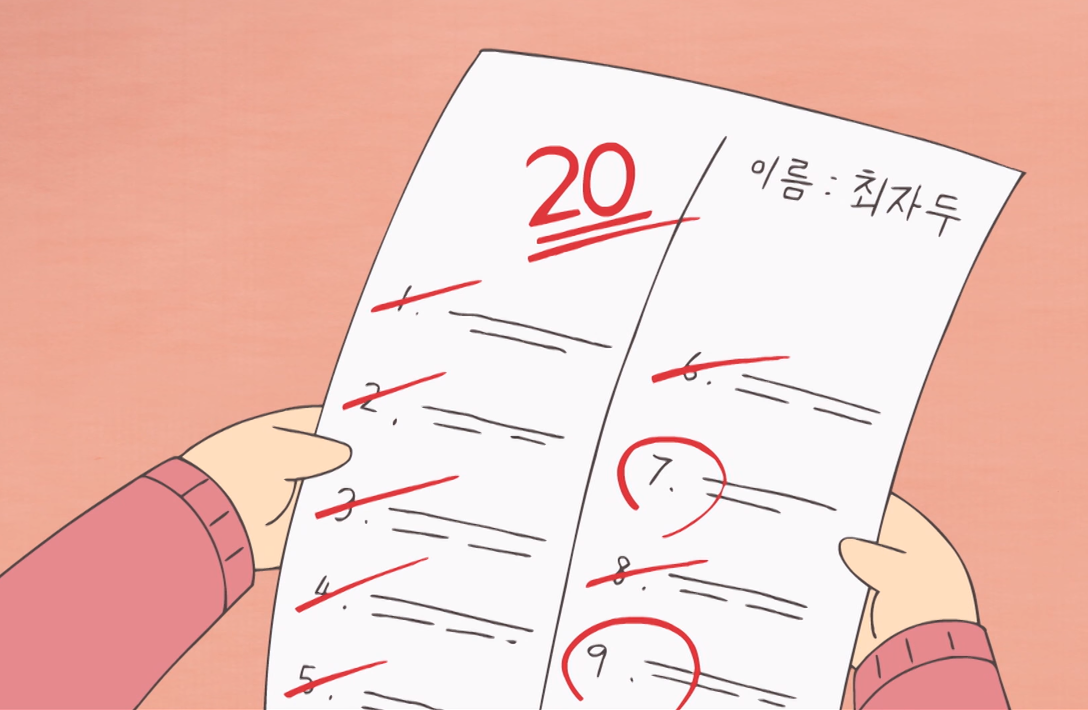 20
이름 : 최자두
1.
2.
3.
4.
5.
6.
7.
8.
9.